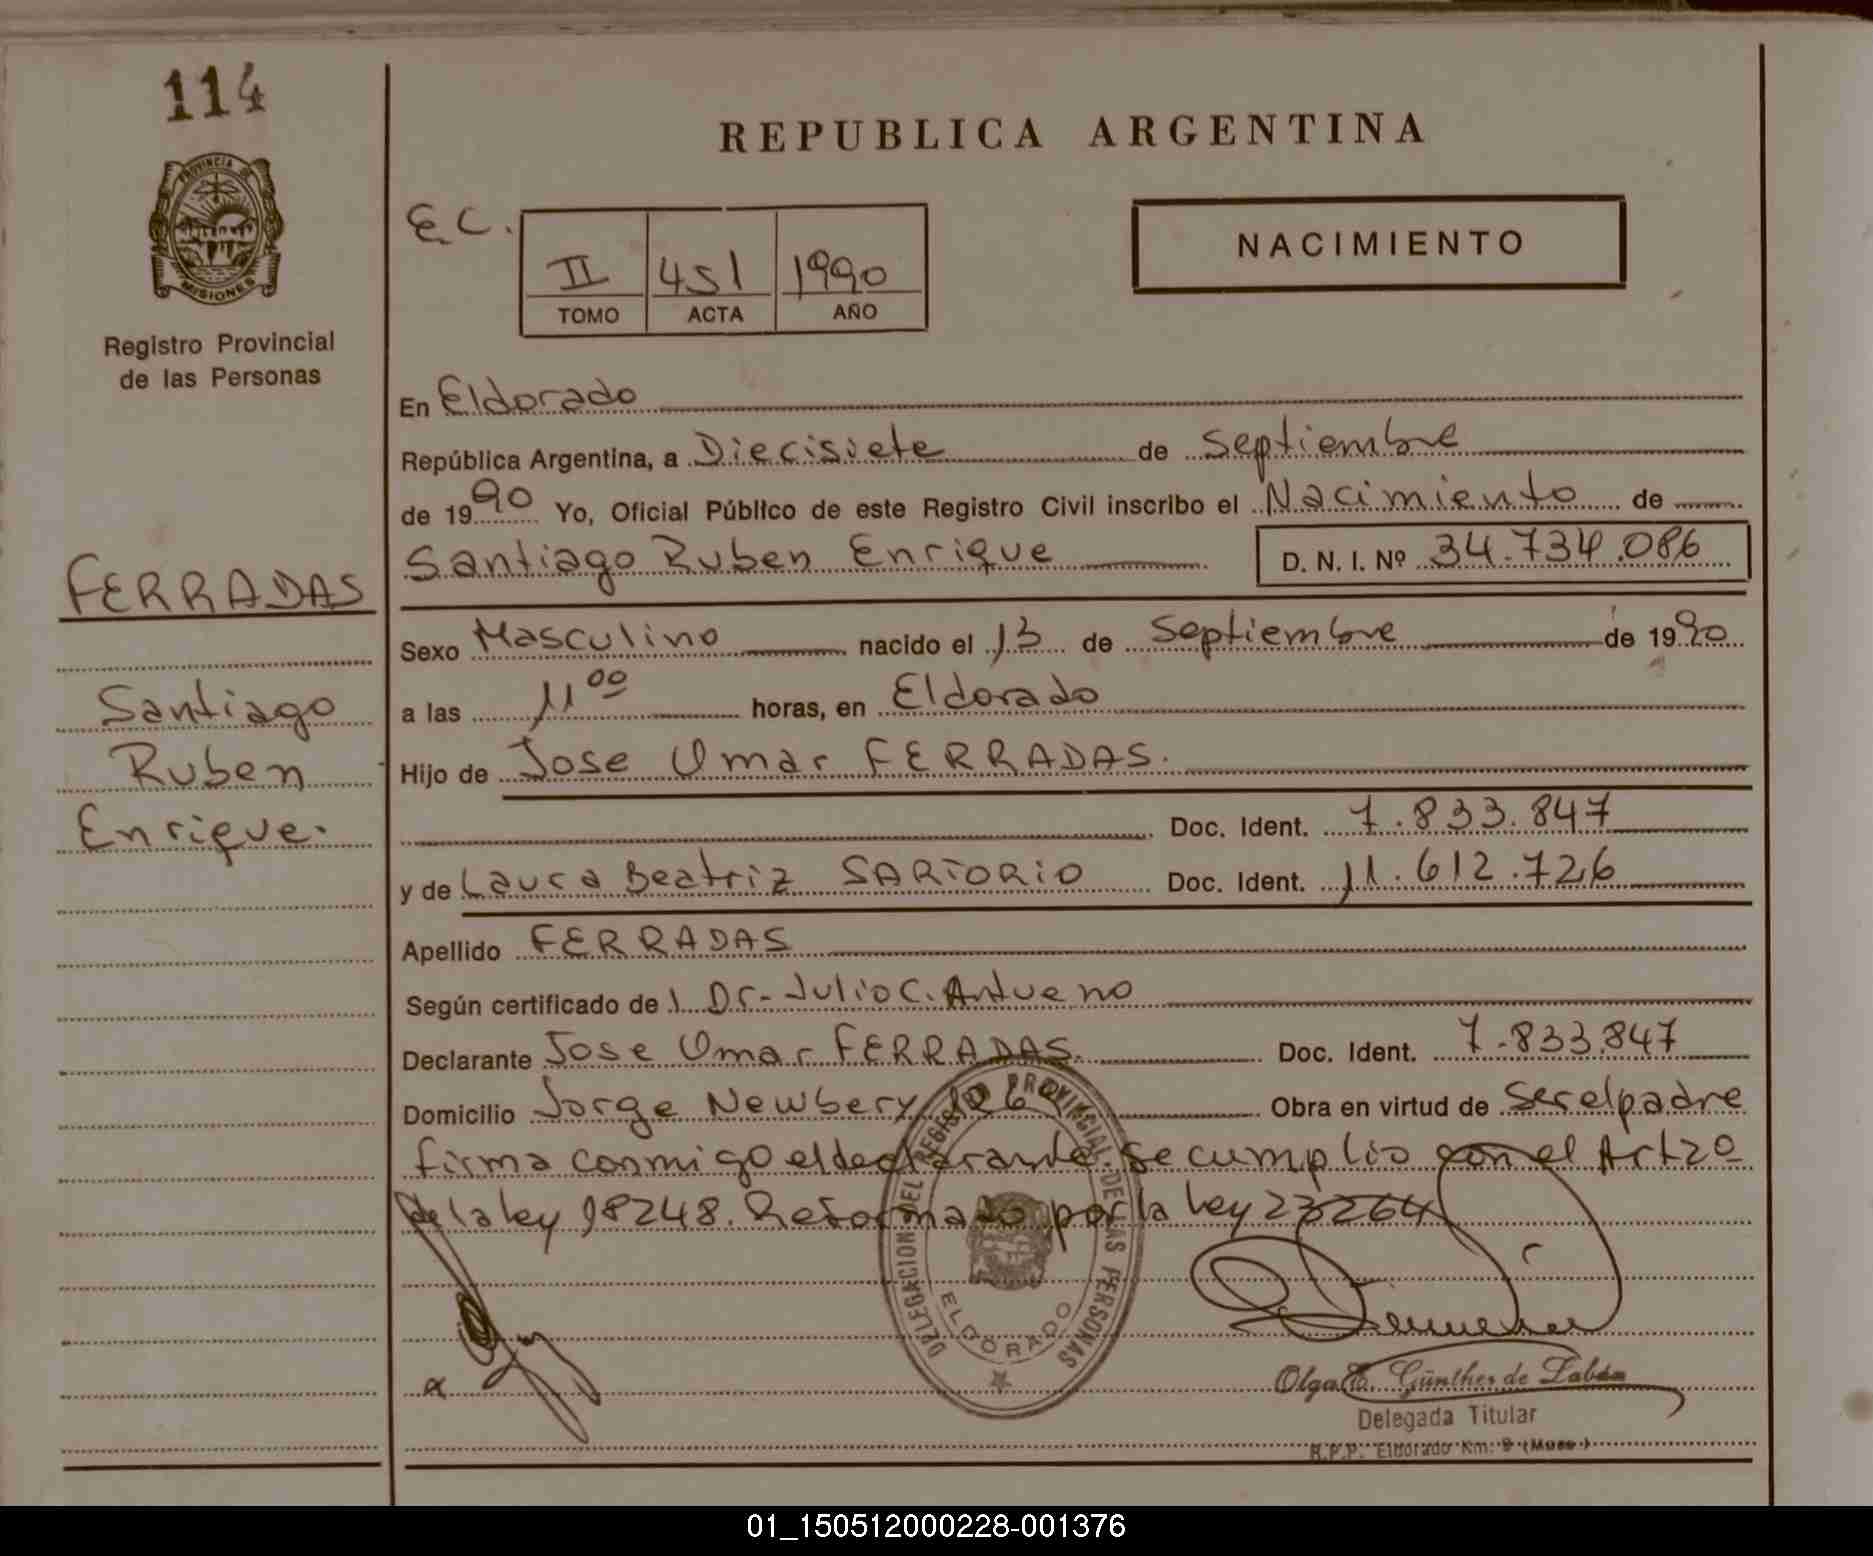 114
PROVINCIA DE
MISIONES
Registro Provincial
de las Personas
REPUBLICA ARGENTINA
E.C.
II 451 1990
TOMO ACTA AÑO
NACIMIENTO
En Eldorado
República Argentina, a Diecisiete de Septiembre
de 1990 Yo, Oficial Público de este Registro Civil inscribo el Nacimiento de
Santiago Ruben Enrique D. N. I. Nº 34.734.086
FERRADAS
Santiago
Ruben
Enrique.
Sexo Masculino nacido el 13 de Septiembre de 1990
a las 11ºº horas, en Eldorado
Hijo de Jose Omar FERRADAS.
Doc. Ident. 7.833.847
y de Laura Beatriz SARTORIO Doc. Ident. 11.612.726
Apellido FERRADAS
Según certificado de l Dr. Julio C. Antueno
Declarante Jose Omar FERRADAS. Doc. Ident. 7.833.847
Domicilio Jorge Newbery Obra en virtud de Ser el padre
firma conmigo el declarante. Se cumplio con el Art 2º
de la ley 18248. Reformado por la ley 23264
DELEGACION DEL REGISTRO PROVINCIAL DE LAS PERSONAS
ELDORADO
Olga E. Günther de Laban
Delegada Titular
R.P.P. Eldorado Km. 9 (Mnes.)
01_150512000228-001376